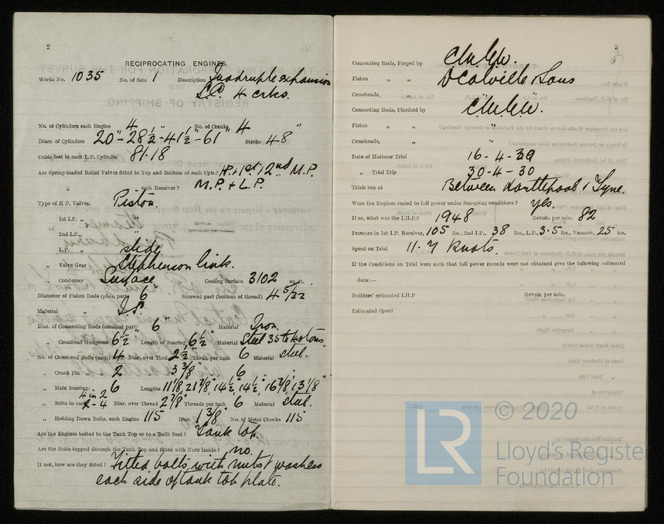 2
RECIPROCATING ENGINES.
Works No. 1035 No. of Sets 1 Description Quadruple expansion
S.C. 4 crks.
No. of Cylinders each Engine 4 No. of Cranks 4
Diars. of Cylinders 20"-28½-41½-61 Stroke 48"
Cubic feet in each L.P. Cylinder 81.18
Are Spring-loaded Relief Valves fitted to Top and Bottom of each Cylr.? H.P. 1st, 2nd M.P.
" " each Receiver? M.P. & L.P.
Type of H.P. Valves, Piston.
" 1st I.P. "
" 2nd I.P. "
" L.P. " slide.
" Valve Gear Stephenson link.
" Condenser Surface Cooling Surface 3102 sq. ft.
Diameter of Piston Rods (plain part) 6 Screwed part (bottom of thread) 4 5/32
Material I.S.
Diar. of Connecting Rods (smallest part) 6 Material Iron.
" Crosshead Gudgeons 6½ Length of Bearing 6½ Material Steel 35 to 40 tons.
No. of Crosshead Bolts (each) 4 Diar. over Thrd. 2½ Thrds. per inch 6 Material steel.
" Crank Pin " " 2 " 3⅜ " 6 "
" Main Bearings 6 Lengths
" Bolts in each 4 in 2 2-4 Diar. over Thread 2⅞ Threads per inch 6 Material steel.
" Holding Down Bolts, each Engine 115 Diar. 1⅜ No. of Metal Chocks 115
Are the Engines bolted to the Tank Top or to a Built Seat? Tank top.
Are the Bolts tapped through the Tank Top and fitted with Nuts Inside? no.
If not, how are they fitted? Fitted bolts with nuts & washers
each side of tank top plate.
3
Connecting Rods, Forged by
Piston " " D Colville & Sons
Crossheads, " "
Connecting Rods, Finished by
Piston " " "
Crossheads, " "
Date of Harbour Trial 16-4-30
" Trial Trip 30-4-30
Trials run at Between Hartlepool & Tyne.
Were the Engines tested to full power under Sea-going conditions? Yes.
If so, what was the I.H.P.? 1948 Revols. per min. 82
Pressure in 1st I.P. Receiver, 105 lbs., 2nd I.P., 38 lbs., L.P., 3.5 lbs., Vacuum, 25 ins.
Speed on Trial 11.7 Knots.
If the Conditions on Trial were such that full power records were not obtained give the following estimated
data:—
Builders' estimated I.H.P. Revols. per min.
Estimated Speed
LR © 2020
Lloyd's Register
Foundation